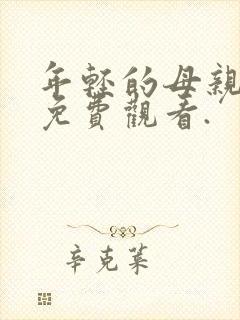 年輕的母親
免費觀看.
辛克萊